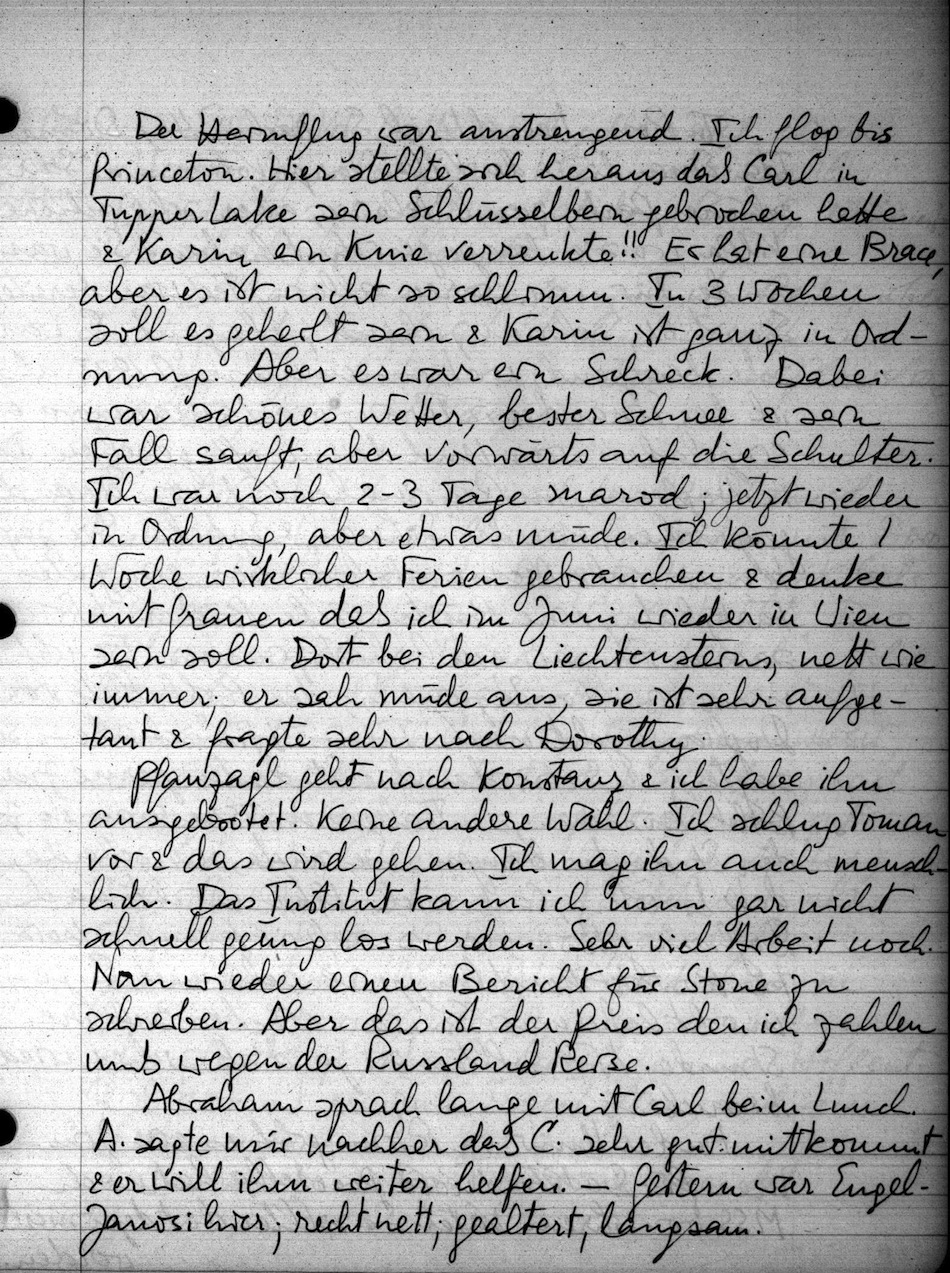 Der Herüberflug war anstrengend. Ich flog bis
Princeton. Hier stellte sich heraus das Carl in
Tupper Lake sein Schlüsselbein gebrochen hatte
& Karin ein Knie verrenkte!! Er hat eine Brace,
aber es ist nicht so schlimm. In 3 Wochen
soll es geheilt sein & Karin ist ganz in Ord-
nung. Aber es war ein Schreck. Dabei
war schönes Wetter, bester Schnee & sein
Fall sanft, aber vorwärts auf die Schulter.
Ich war noch 2-3 Tage marod; jetzt wieder
in Ordnung, aber etwas müde. Ich könnte 1
Woche wirklicher Ferien gebrauchen & denke
mit Grauen das ich im Juni wieder in Wien
sein soll. Dort bei den Liechtensteins, nett wie
immer; er sah müde aus, sie ist sehr aufge-
taut & fragte sehr nach Dorothy.
Pfanzagl geht nach Konstanz & ich habe ihn
ausgebootet. Keine andere Wahl. Ich schlug Toman
vor & das wird gehen. Ich mag ihn auch mensch-
lich. Das Institut kann ich nun gar nicht
schnell genug los werden. Sehr viel Arbeit noch.
Nun wieder einen Bericht für Stone zu
schreiben. Aber das ist der Preis den ich zahlen
muss wegen der Russland Reise.
Abraham sprach lange mit Carl beim Lunch.
A. sagte mir nachher das C. sehr gut mittkommt
& er will ihm weiter helfen. — Gestern war Engel-
Janosi hier; recht nett; gealtert, langsam.